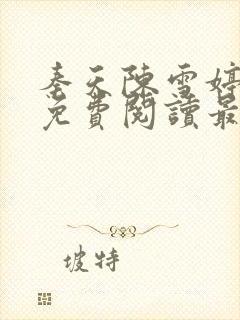 奉天陳雪婷
免費閱讀最
坡特